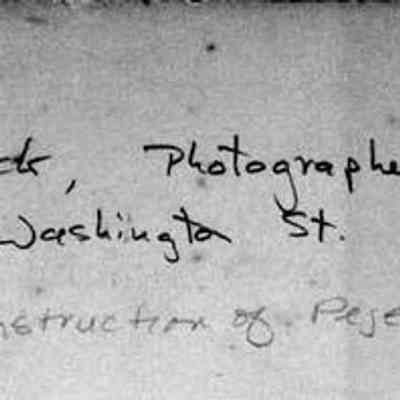 ck, Photographe
Washington St.
nstruction of Pege